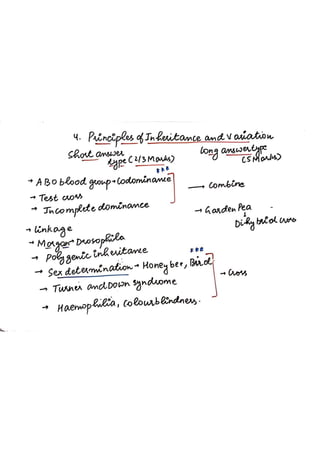 4. Principles of Inheritance and Variation
Short answer type (2/3 Marks)
Long answer type (5 Marks)
→ ABO blood group → Codominance ***
→ Test cross
→ Incomplete dominance
→ Combine
→ Garden Pea
↓
Dihybrid cross
→ Linkage
→ Morgan → Drosophila
→ Polygenic inheritance ***
→ Sex determination → Honey bee, Bird
→ Cross
→ Turner and Down syndrome
→ Haemophilia, Colour blindness.